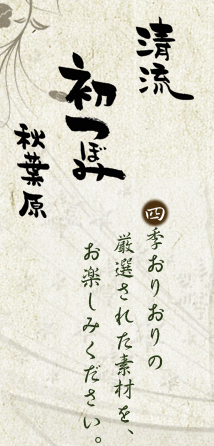 清流
初つぼみ
秋葉原
四季おりおりの
厳選された素材を、
お楽しみください。